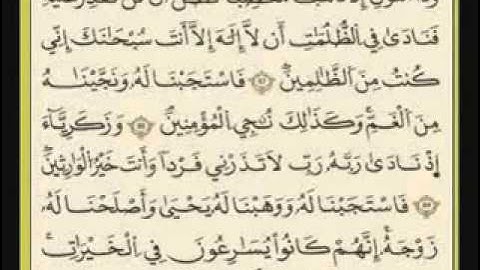 فَنَادَىٰ فِي ٱلظُّلُمَٰتِ أَن لَّآ إِلَٰهَ إِلَّآ أَنتَ سُبْحَٰنَكَ إِنِّي
كُنتُ مِنَ ٱلظَّٰلِمِينَ ۝٨٧ فَٱسْتَجَبْنَا لَهُۥ وَنَجَّيْنَٰهُ
مِنَ ٱلْغَمِّ ۚ وَكَذَٰلِكَ نُۨجِي ٱلْمُؤْمِنِينَ ۝٨٨ وَزَكَرِيَّآ
إِذْ نَادَىٰ رَبَّهُۥ رَبِّ لَا تَذَرْنِي فَرْدًا وَأَنتَ خَيْرُ ٱلْوَٰرِثِينَ
۝٨٩ فَٱسْتَجَبْنَا لَهُۥ وَوَهَبْنَا لَهُۥ يَحْيَىٰ وَأَصْلَحْنَا لَهُۥ
زَوْجَهُۥٓ ۚ إِنَّهُمْ كَانُوا۟ يُسَٰرِعُونَ فِي ٱلْخَيْرَٰتِ